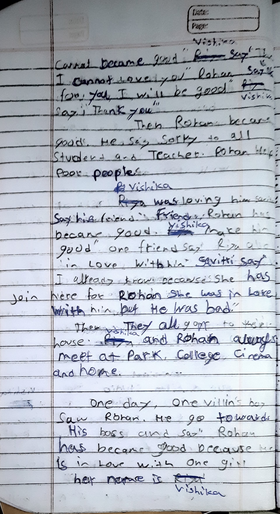 Date:
Page:
Vishika
Cannot became good" say "If
I cannot love you" Rohan say
for you I will be good"
Vishika
say "Thank you"
Then Rohan became
good. He say sorry to all
Student and Teacher. Rohan help
Poor peoples.
Vishika
was loving him
say his friend Friend, Rohan has
Vishika
became good. make him
good" one friend say
in Love with him say
I already know because She has
join here for Rohan She was in Love
with him but He was bad"
Then They all
house. and Rohan always
meet at Park, College, Cinema
and home.
One day, One villin's boy
Saw Rohan. He go towards
His boss and say "Rohan
has became good because He
is in Love with One girl
her name is
Vishika